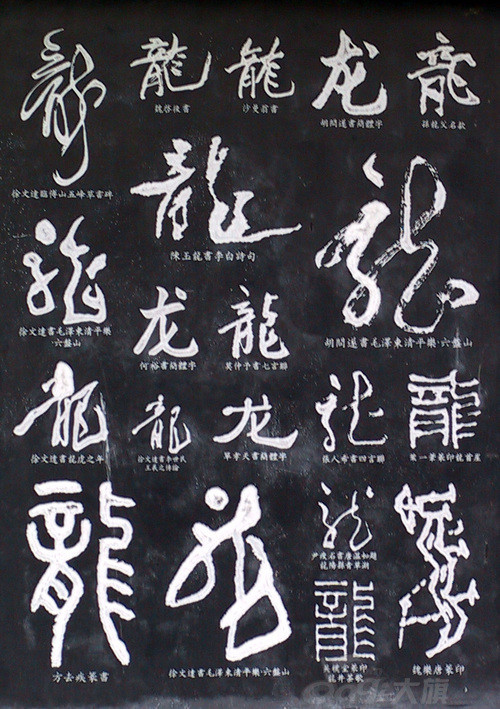 龍
龍
龍
龙
龍
徐文達臨傅山五峰草書碑
魏啓後書
沙曼翁書
胡問遂書簡體字
孫龍父名款
龍
陳玉龍書李白詩句
龍
徐文達書毛澤東清平樂
·六盤山
龍
胡問遂書毛澤東清平樂·六盤山
龙
何裕書簡體字
龍
莫仲予書七言聯
龍
徐文達書龍虎之年
龍
徐文達書李世民
王羲之傳論
龙
單孝天書簡體字
龍
張人希書四言聯
龍
龍
方去疾篆書
龍
徐文達書毛澤東清平樂·六盤山
龍
尹瘦石書唐溫如題
龍陽縣青草湖
龍
吳樸堂篆印
龍井茶歌
龍
魏樂唐篆印
大旗